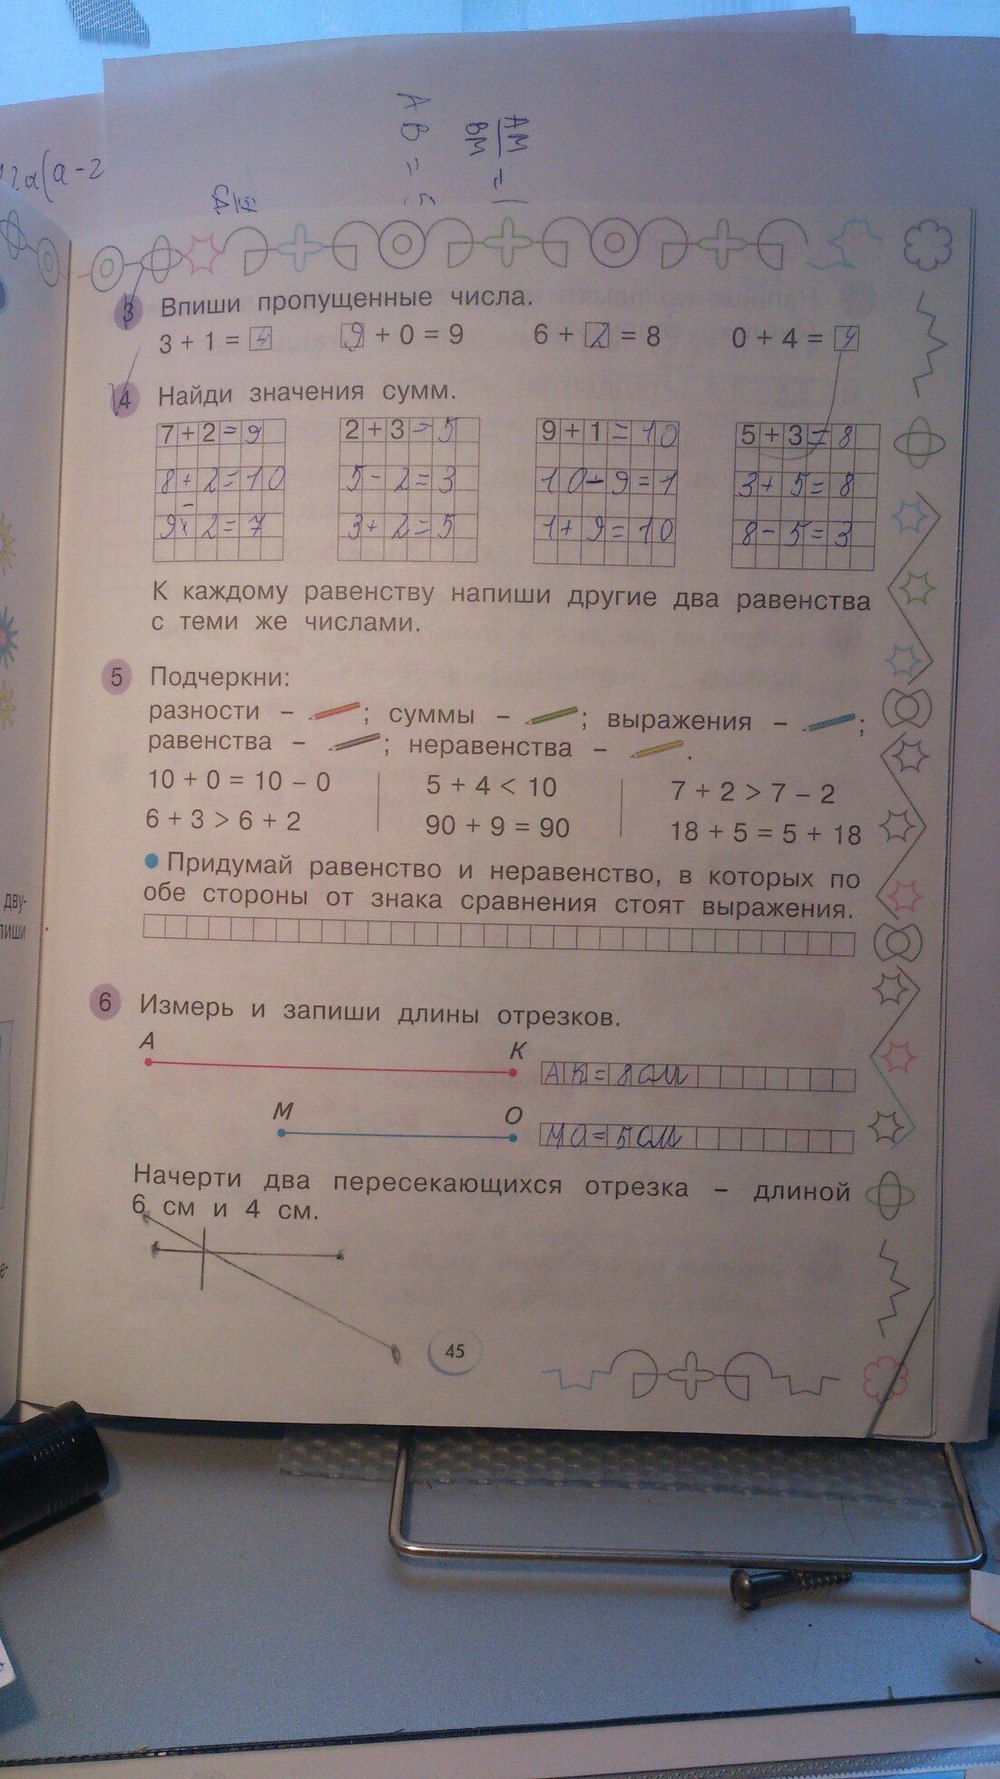 12a(a-2
AB =
AM
BM =
3 Впиши пропущенные числа.
3 + 1 = 4 9 + 0 = 9 6 + 2 = 8 0 + 4 = 4
4 Найди значения сумм.
7+2=9 2+3=5 9+1=10 5+3=8
8+2=10 5-2=3 10-9=1 3+5=8
9-2=7 3+2=5 1+9=10 8-5=3
К каждому равенству напиши другие два равенства
с теми же числами.
5 Подчеркни:
разности – ; суммы – ; выражения – ;
равенства – ; неравенства – .
10 + 0 = 10 – 0 5 + 4 < 10 7 + 2 > 7 – 2
6 + 3 > 6 + 2 90 + 9 = 90 18 + 5 = 5 + 18
• Придумай равенство и неравенство, в которых по
обе стороны от знака сравнения стоят выражения.
6 Измерь и запиши длины отрезков.
А К АК=8см
М О МО=5см
Начерти два пересекающихся отрезка – длиной
6 см и 4 см.
45
дву-
пиши
е-